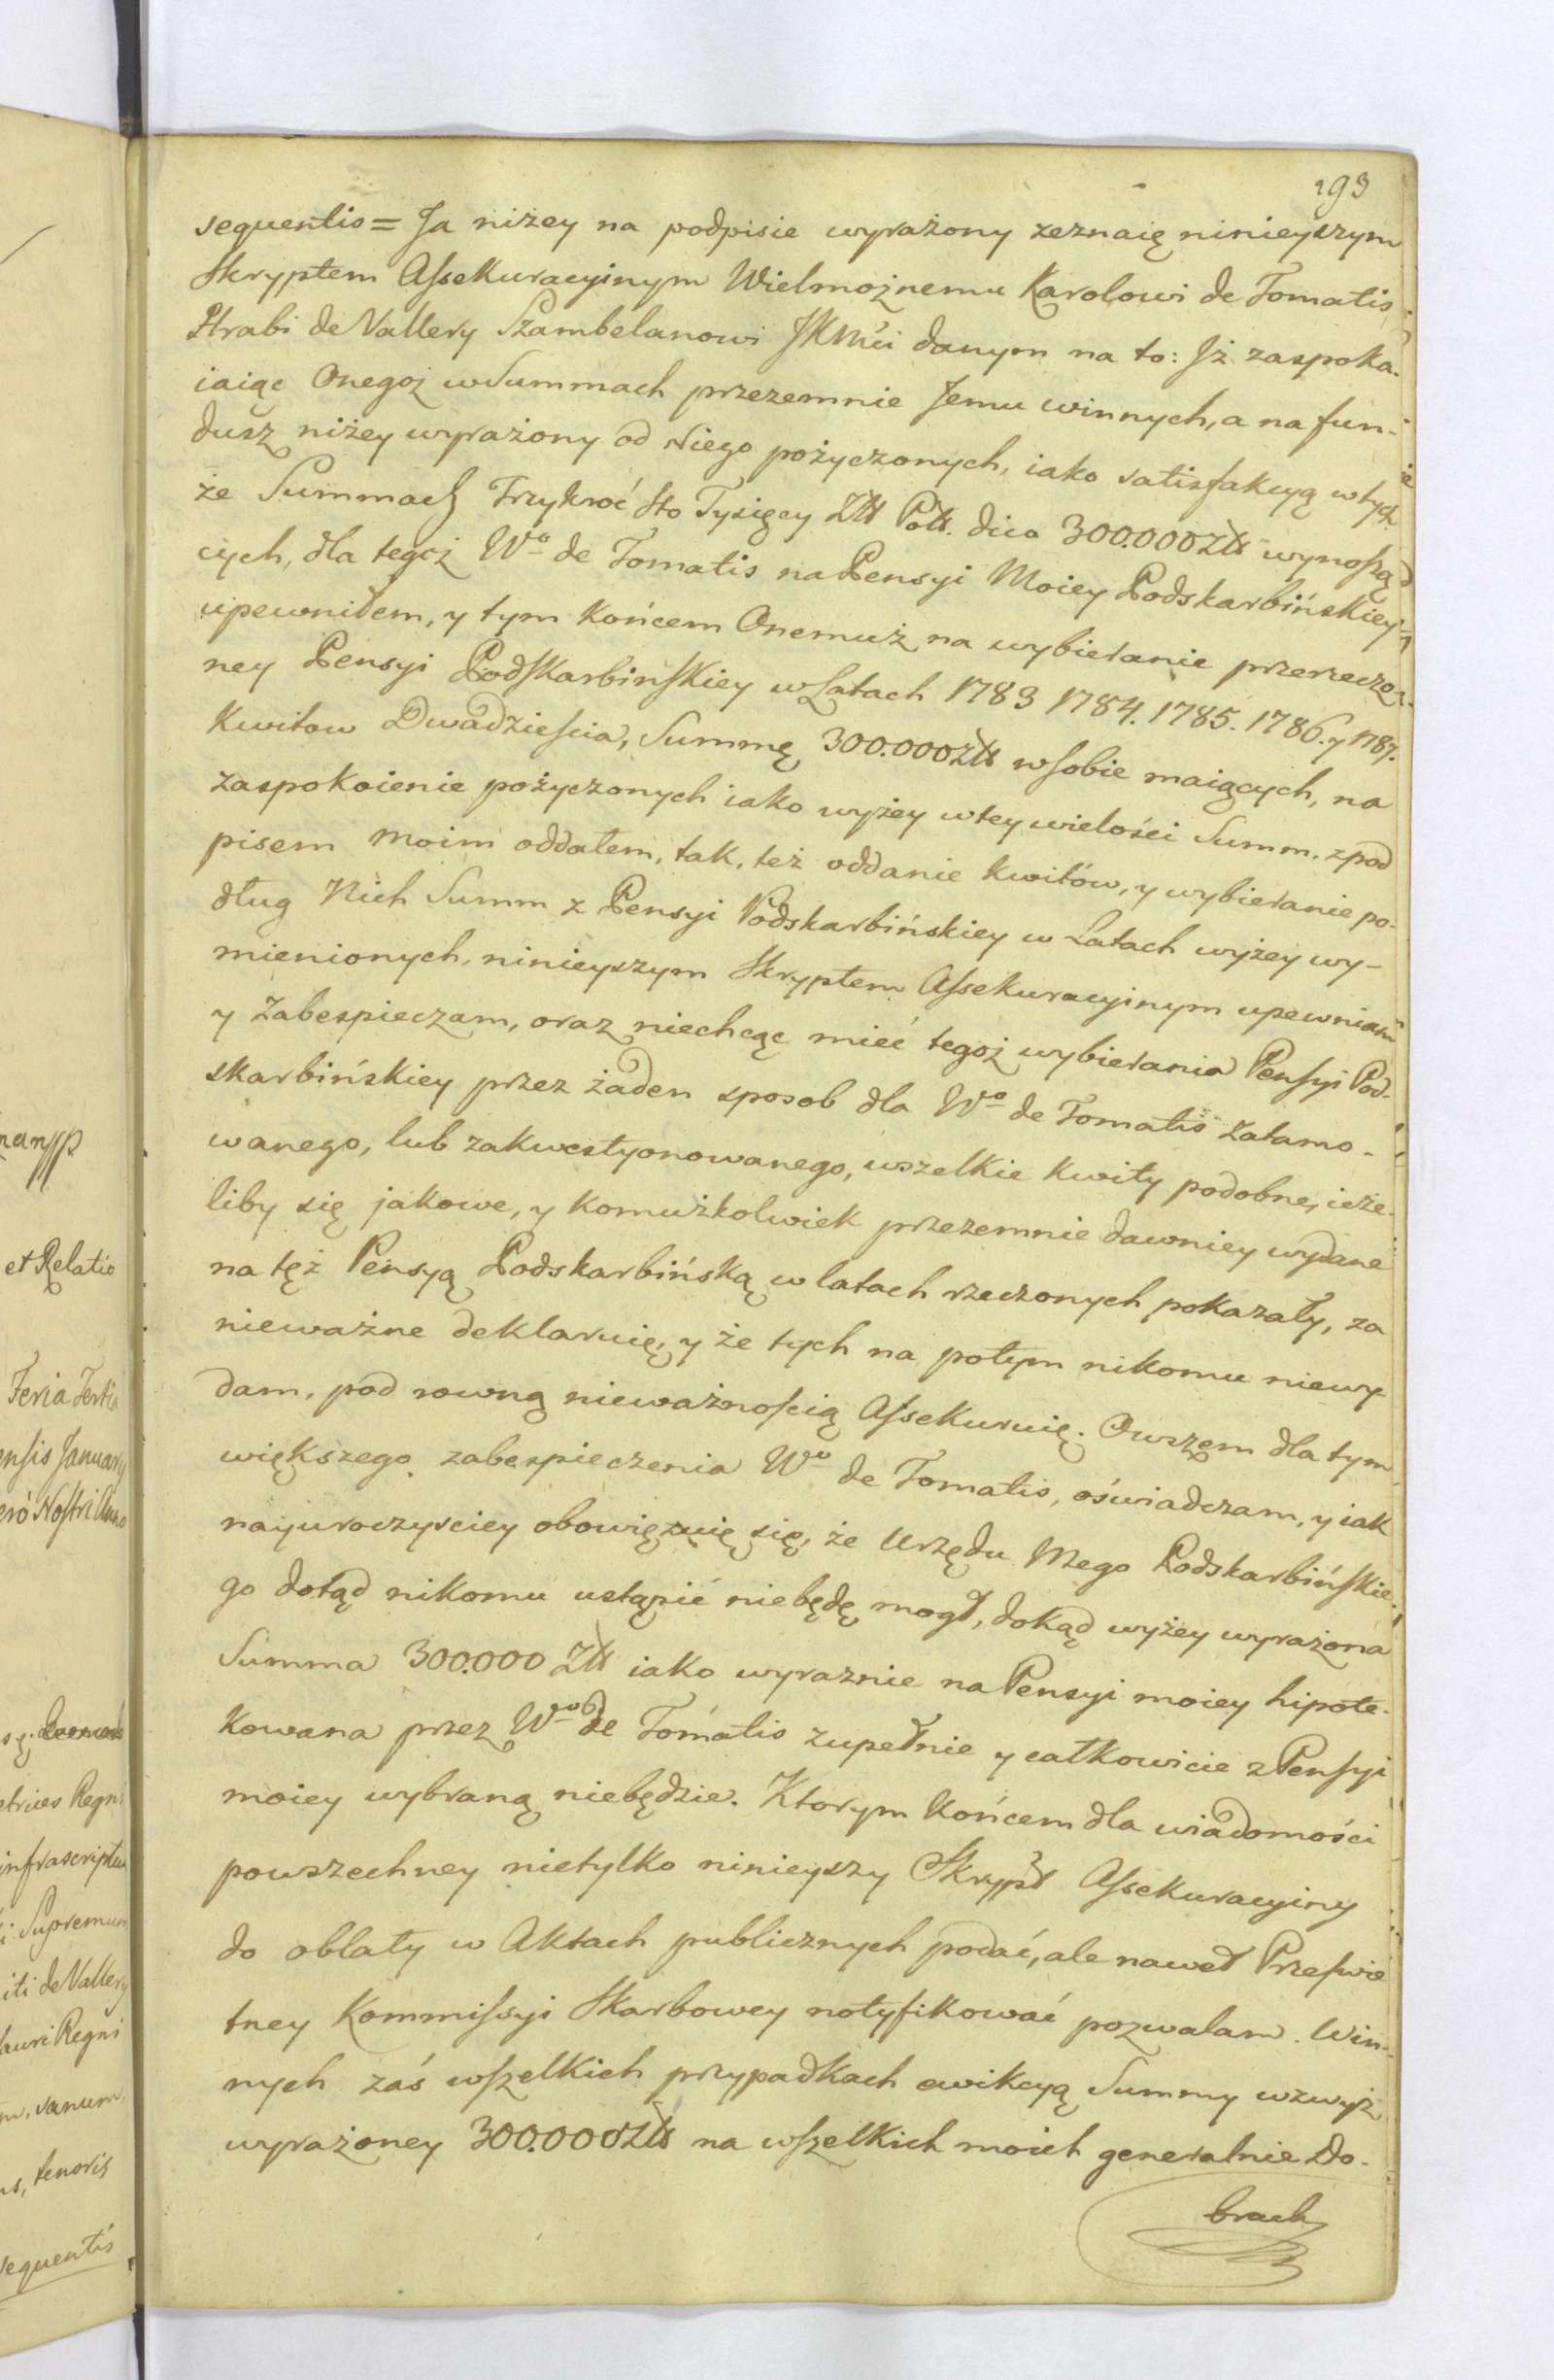 193
sequentis = Ja niżey na podpisie wyrażony zeznaię ninieyszym
Skryptem Assekuracyinym Wielmożnemu Karolowi de Tomatis
Hrabi de Vallery Szambelanowi JKMći danym na to: Jż zaspoka-
iaiąc Onegoż w Summach przezemnie Jemu winnych, a na fun-
dusz niżey wyrażony od Niego pożyczonych, iako satisfakcyą w tych-
że Summach Trzykroć Sto Tysięcy Złł Polł. dico 300.000 Złł wynoszą-
cych, dla tegoż Wo de Tomatis na Pensyi Moiey Podskarbińskiey
upewniłem, y tym końcem Onemuż na wybieranie przerzeczo-
ney Pensyi Podskarbinskiey w Latach 1783 1784. 1785. 1786. y 1787.
Kwitow Dwadziescia, Summę 300.000 Złł w sobie maiących, na
zaspokoienie pożyczonych iako wyżey w tey wielości Summ. z pod
pisem moim oddałem, tak, też oddanie kwitów, y wybieranie po-
dług Nich Summ z Pensyi Podskarbińskiey w Latach wyżey wy-
mienionych, ninieyszym Skryptem Assekuracyinym upewniam
y Zabespieczam, oraz niechcąc mieć tegoż wybierania Pensyi Pod-
skarbińskiey przez żaden sposob dla Wo de Tomatis zatamo-
wanego, lub zakwestyonowanego, wszelkie kwity podobne, ieże-
liby się jakowe, y komużkolwiek przezemnie dawniey wydane
na tęż Pensyą Podskarbińską w latach rzeczonych pokazały, za
nieważne deklaruię, y że tych na potym nikomu niewy-
dam, pod rowną nieważnością Assekuruię. Owszem dla tym
większego zabespieczenia Wo de Tomatis, oświadczam, y iak
nayuroczyściey obowięzuię się, że Urzędu Mego Podskarbińskie-
go dotąd nikomu ustąpić niebędę mogł, dokąd wyżey wyrażona
Summa 300.000 Złł iako wyraznie na Pensyi moiey hipote-
kowana przez Wo de Tomatis zupełnie y całkowicie z Pensyi
moiey wybraną niebędzie. Ktorym końcem dla wiadomości
powszechney nietylko ninieyszy Skrypt Assekuracyiny
do oblaty w Aktach publicznych podać, ale nawet Przeswie
tney Kommissyi Skarbowey notyfikować pozwalam. W in-
nych zaś wszelkich przypadkach ewikcyą Summy wzwyż
wyrażoney 300.000 Złł na wszelkich moich generalnie Do-
brach
et Relatio
Feria Tertia
ensis January
ero Nostri Anno
etrices Regni
infrascriptus
i Supremum
iti de Vallery
auri Regni
tenoris
sequentis